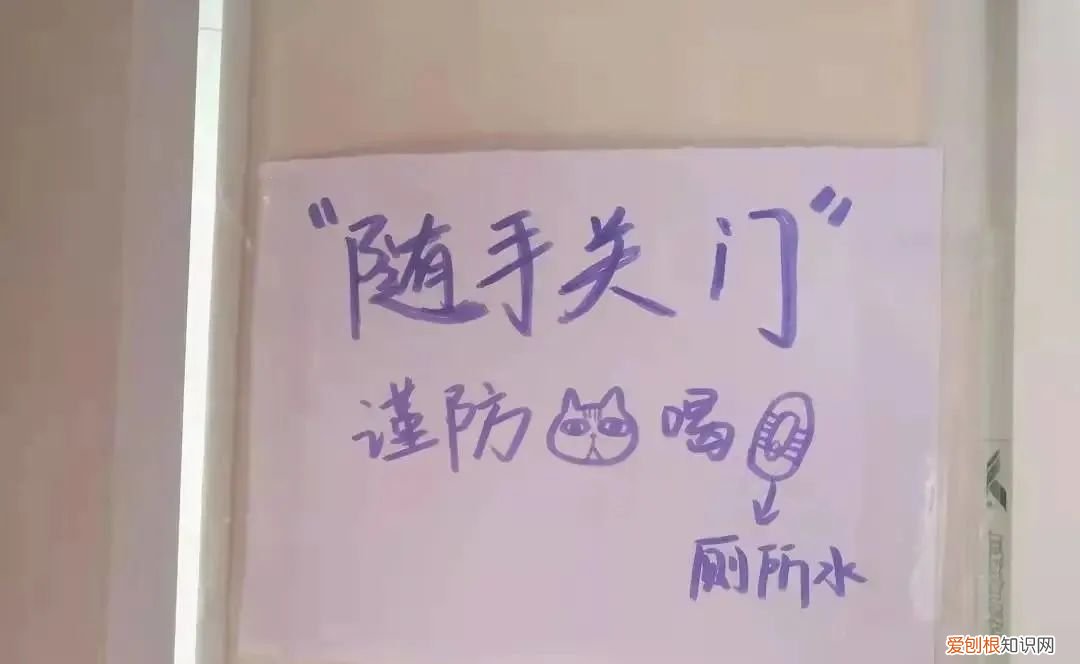 "随手关门"
谨防喝
厕所水
爱刨根知识网